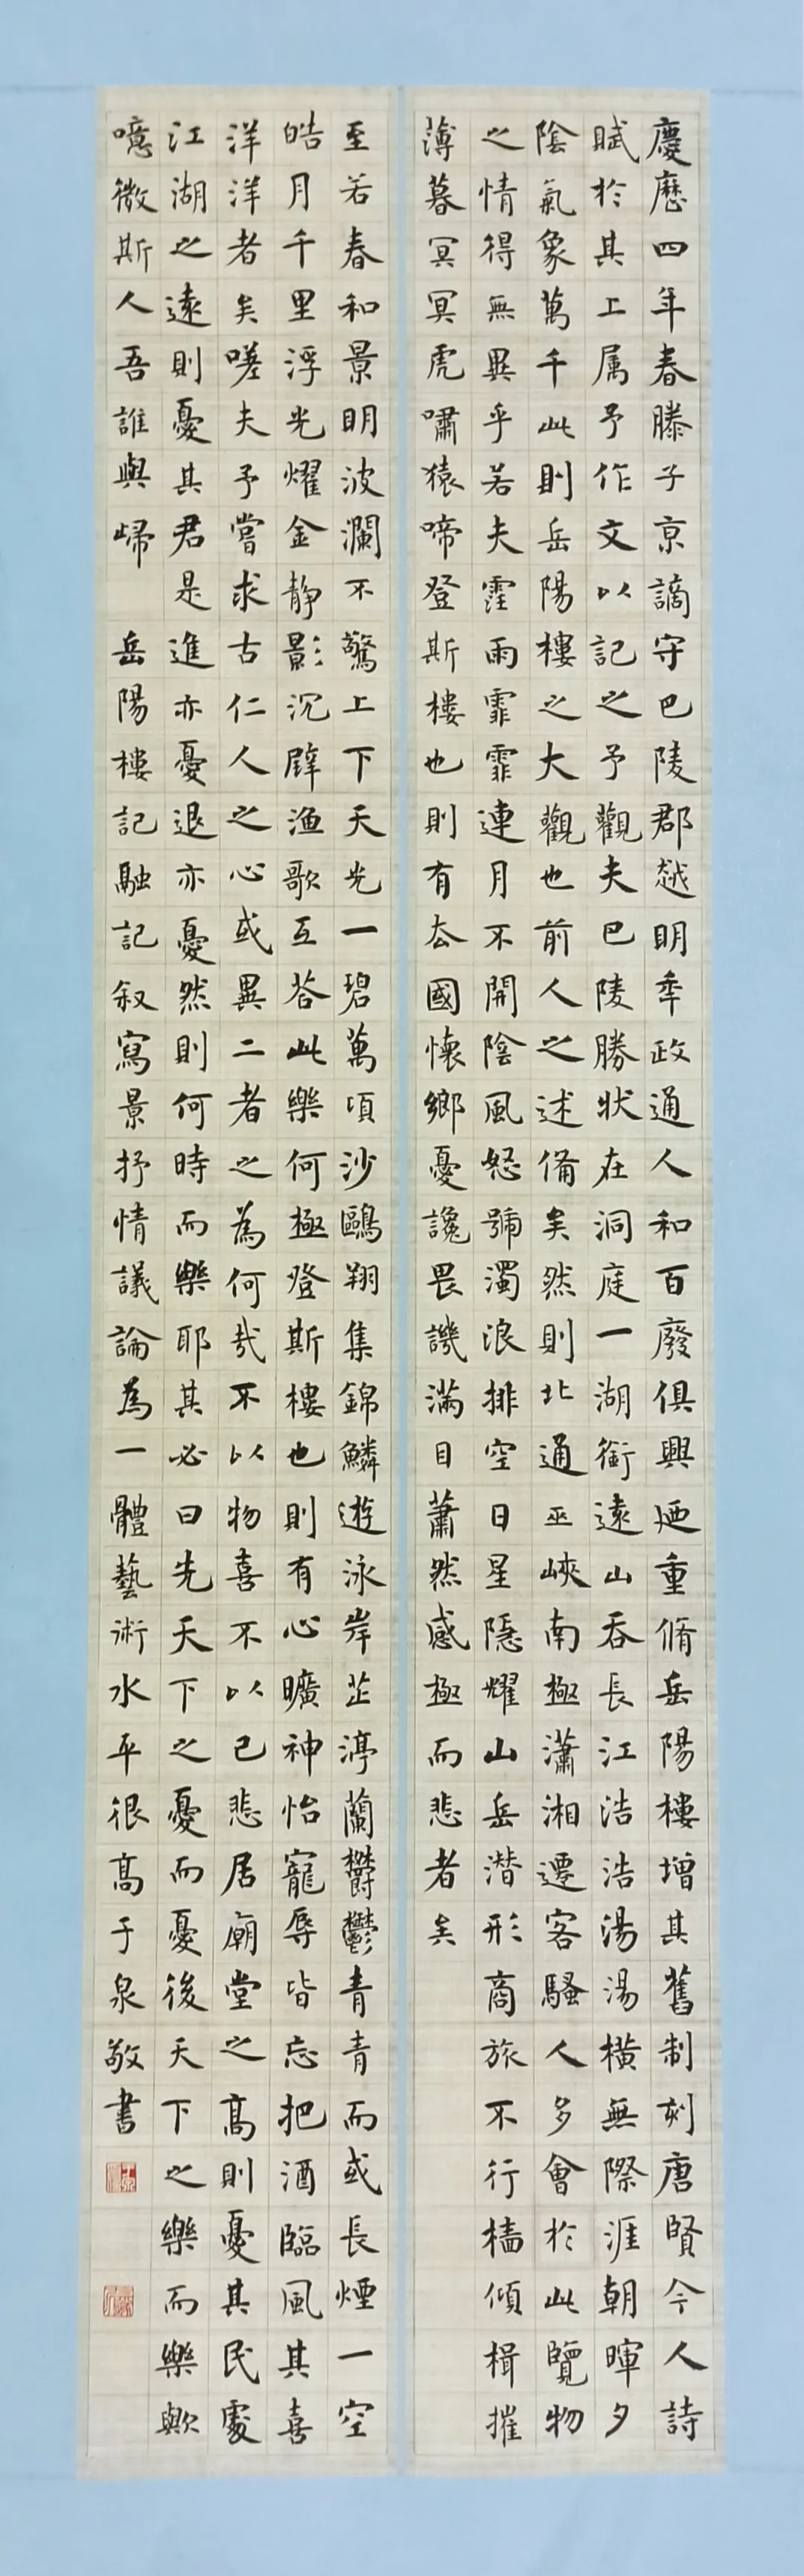 慶歷四年春滕子京謫守巴陵郡越明秊政通人和百廢俱興廼重脩岳陽樓增其舊制刻唐賢今人詩
賦於其上属予作文以記之予觀夫巴陵勝狀在洞庭一湖銜遠山吞長江浩浩湯湯橫無際涯朝暉夕
陰氣象萬千此則岳陽樓之大觀也前人之述備矣然則北通巫峽南極瀟湘遷客騷人多會於此覽物
之情得無異乎若夫霪雨霏霏連月不開陰風怒號濁浪排空日星隱耀山岳潛形商旅不行檣傾楫摧
薄暮冥冥虎嘯猿啼登斯樓也則有去國懷鄉憂讒畏譏滿目蕭然感極而悲者矣
至若春和景明波瀾不驚上下天光一碧萬頃沙鷗翔集錦鱗遊泳岸芷渟蘭鬱鬱青青而或長煙一空
皓月千里浮光耀金静影沉璧漁歌互答此樂何極登斯樓也則有心曠神怡寵辱皆忘把酒臨風其喜
洋洋者矣嗟夫予嘗求古仁人之心或異二者之為何哉不以物喜不以己悲居廟堂之高則憂其民處
江湖之遠則憂其君是進亦憂退亦憂然則何時而樂耶其必曰先天下之憂而憂後天下之樂而樂歟
噫微斯人吾誰與歸 岳陽樓記融記叙寫景抒情議論為一體藝術水平很高于泉敬書